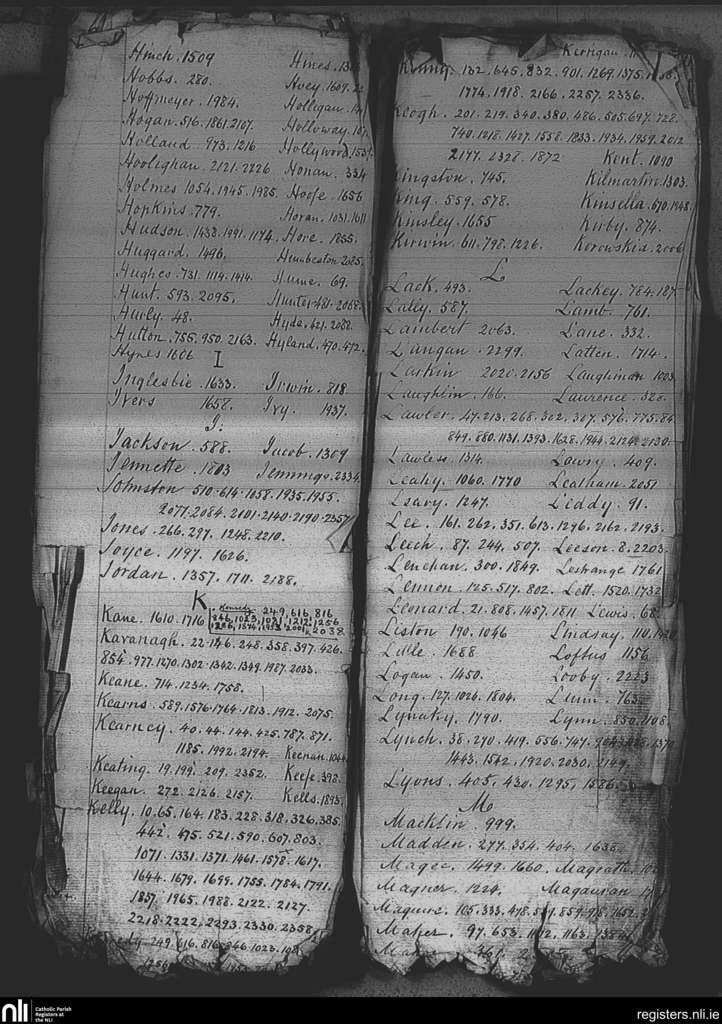 Hinch. 1509 Hines.
Hobbs. 280. Hoey. 1609.
Hoffmeyer. 1984. Holligan.
Hogan. 516. 1861. 2107. Holloway.
Holland 973. 1216 Hollywood.
Hoolighan. 2121. 2226 Honan. 334
Holmes 1054. 1945. 1985. Hoope. 1656
Hopkins. 779. Horan. 1031. 1611
Hudson. 1438. 1991. 1174. Hore. 1855.
Huggard. 1496. Humbeston. 2085.
Hughes. 731. 1114. 1414. Hume. 69.
Hunt. 593. 2095. Hunter. 481. 2068.
Hurly 48. Hyde. 621. 2082.
Hutton. 755. 950. 2163. Hyland. 470. 472.
Hynes 1606
I
Inglesbie. 1633. Irwin. 818.
Ivers 1658. Ivy. 1937.
J.
Jackson. 588. Jacob. 1309
Jennette. 1803 Jennings. 2334
Johnston 510. 614. 1158. 1935. 1955.
2077. 2084. 2101. 2140. 2190. 2357
Jones. 266. 297. 1248. 2210.
Joyce. 1197. 1626.
Jordan. 1357. 1711. 2188.
K
Kennedy 249. 616. 816
Kane. 1610. 1716 846. 1023. 1071. 1212. 1256
2038
Kavanagh. 22. 146. 248. 358. 397. 426.
854. 977. 1270. 1302. 1342. 1349. 1987. 2033.
Keane. 714. 1234. 1758.
Kearns. 589. 1576. 1764. 1813. 1912. 2075.
Kearney. 40. 44. 144. 425. 787. 871.
1185. 1992. 2194. Keenan. 1044
Keating. 19. 199. 209. 2352. Keefe. 398.
Keegan. 272. 2126. 2157. Kells. 1893.
Kelly. 10. 65. 164. 183. 228. 318. 326. 385.
442. 475. 521. 590. 607. 803.
1071. 1331. 1371. 1461. 1578. 1617.
1644. 1679. 1699. 1755. 1784. 1791.
1857. 1965. 1988. 2122. 2127.
2218. 2222. 2293. 2330. 2358.
249. 616. 816. 846. 1023.
1256
Kerrigan.
Kenny. 132. 645. 832. 901. 1269. 1375.
1774. 1918. 2166. 2257. 2336.
Keogh. 201. 219. 340. 380. 486. 505. 697. 728.
740. 1218. 1427. 1558. 1833. 1934. 1959. 2012
2177. 2328. 1872 Kent. 1090
Kingston. 745. Kilmartin. 1303.
King. 559. 578. Kinsella. 670. 1948
Kinsley. 1655 Kirby. 874.
Kirwin. 611. 798. 1226. Korowskia. 2006
L
Lack. 493. Lackey. 784.
Lally. 587. Lamb. 761.
Lambert 2063. Lane. 332.
Langan. 2299. Latten. 1714.
Larkin 2020. 2156 Laughnan 1003
Laughlin. 166. Laurence. 328.
Lawler. 47. 213. 268. 302. 307. 576. 775.
849. 880. 1131. 1393. 1628. 1944. 2124. 2130.
Lawless. 1314. Lawry. 409.
Leahy. 1060. 1770 Leatham. 2051
Leary. 1247. Leddy. 91.
Lee. 161. 262. 351. 613. 1296. 2162. 2193.
Leech. 87. 244. 507. Leeson. 8. 2203.
Lenehan. 300. 1849. Lestrange 1761
Lennon. 125. 517. 802. Lett. 1520. 1732
Leonard. 21. 808. 1457. 1811 Lewis. 68.
Liston 190. 1046 Lindsay. 110.
Lisle. 1688 Loftus 1156
Logan. 1450. Looby. 2223
Long. 127. 1026. 1804. Lunn. 765.
Lynaky. 1790. Lynn. 850. 1108.
Lynch. 38. 270. 419. 556. 747. 1370
1443. 1542. 1920. 2030. 2149.
Lyons. 405. 430. 1295. 1586.
M
Macklin 999.
Madden. 277. 354. 404. 1635.
Magee. 1499. 1660. Magrath.
Magner. 1224. Magauran
Maguire. 105. 333. 478. 859.
Maher. 97. 653. 1163.
nli
Catholic Parish
Registers at
the NLI
registers.nli.ie